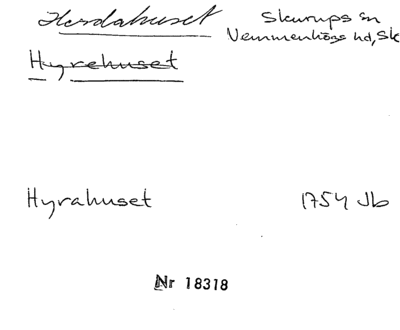 Herdahuset Skurups sn
Vemmenhögs hd, Sk
Hyrehuset
Hyrahuset 1754 Jb
Nr 18318